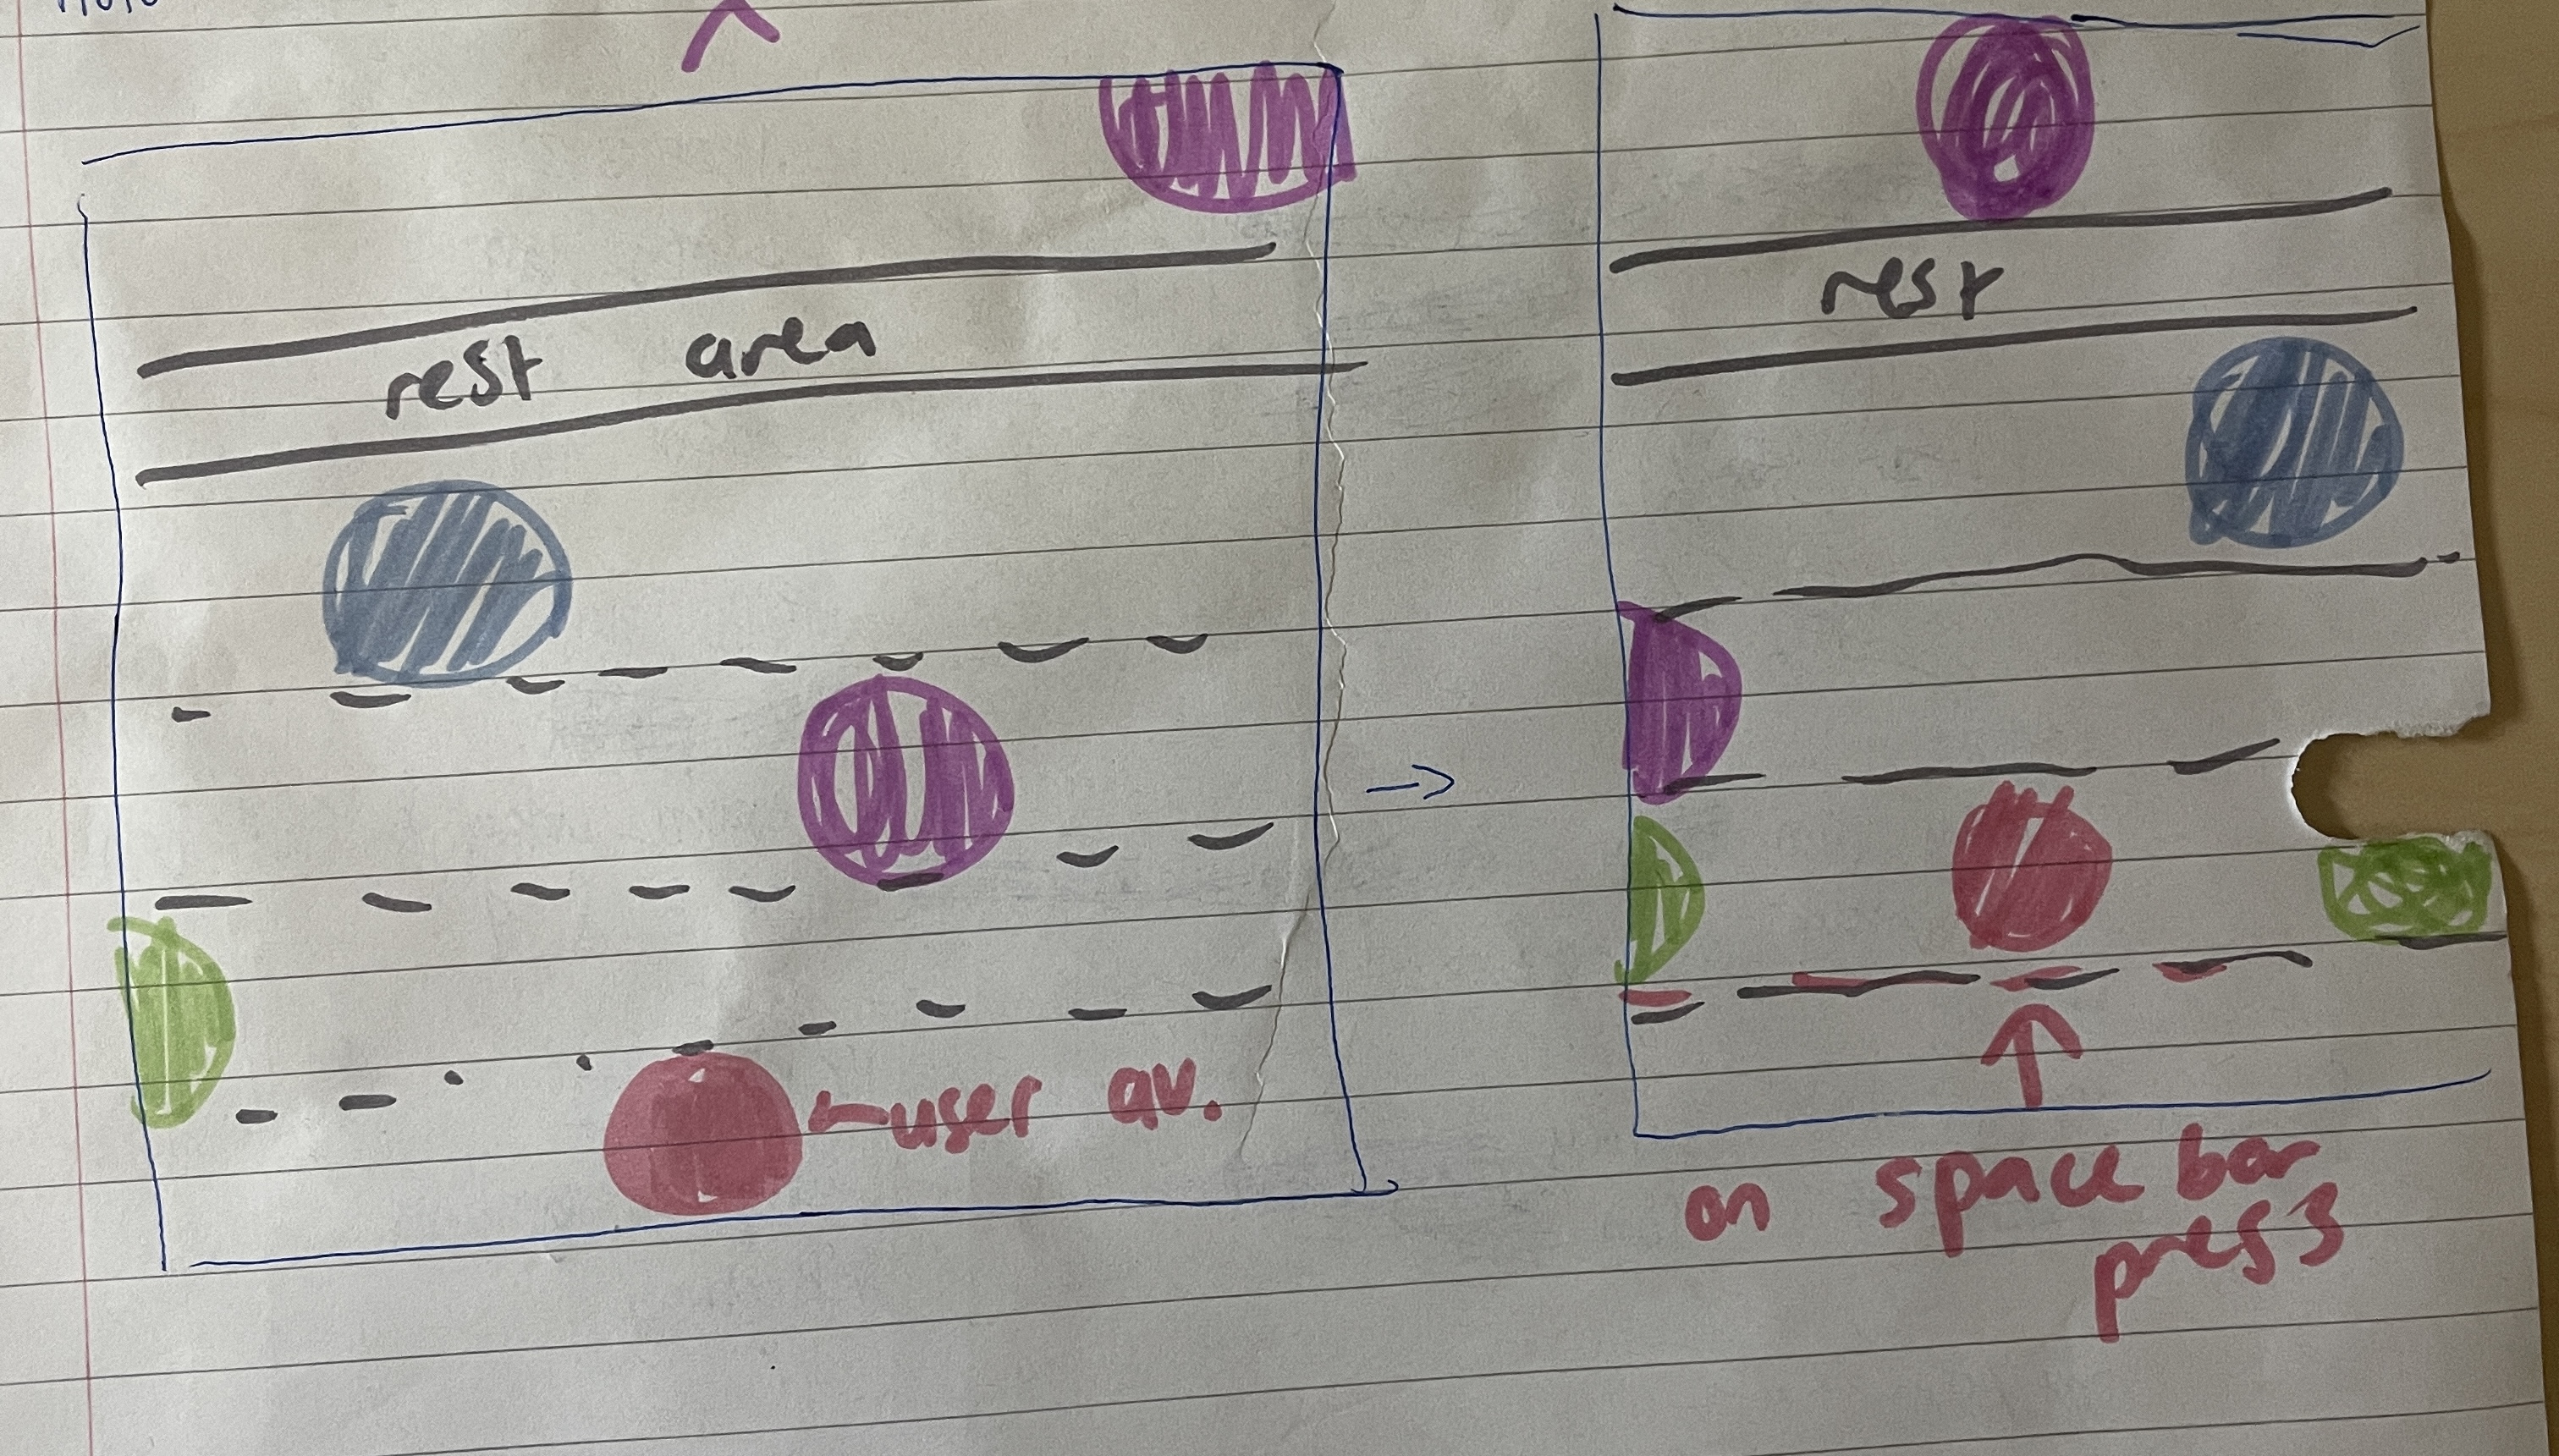 rest area
user av.
rest
on space bar
press